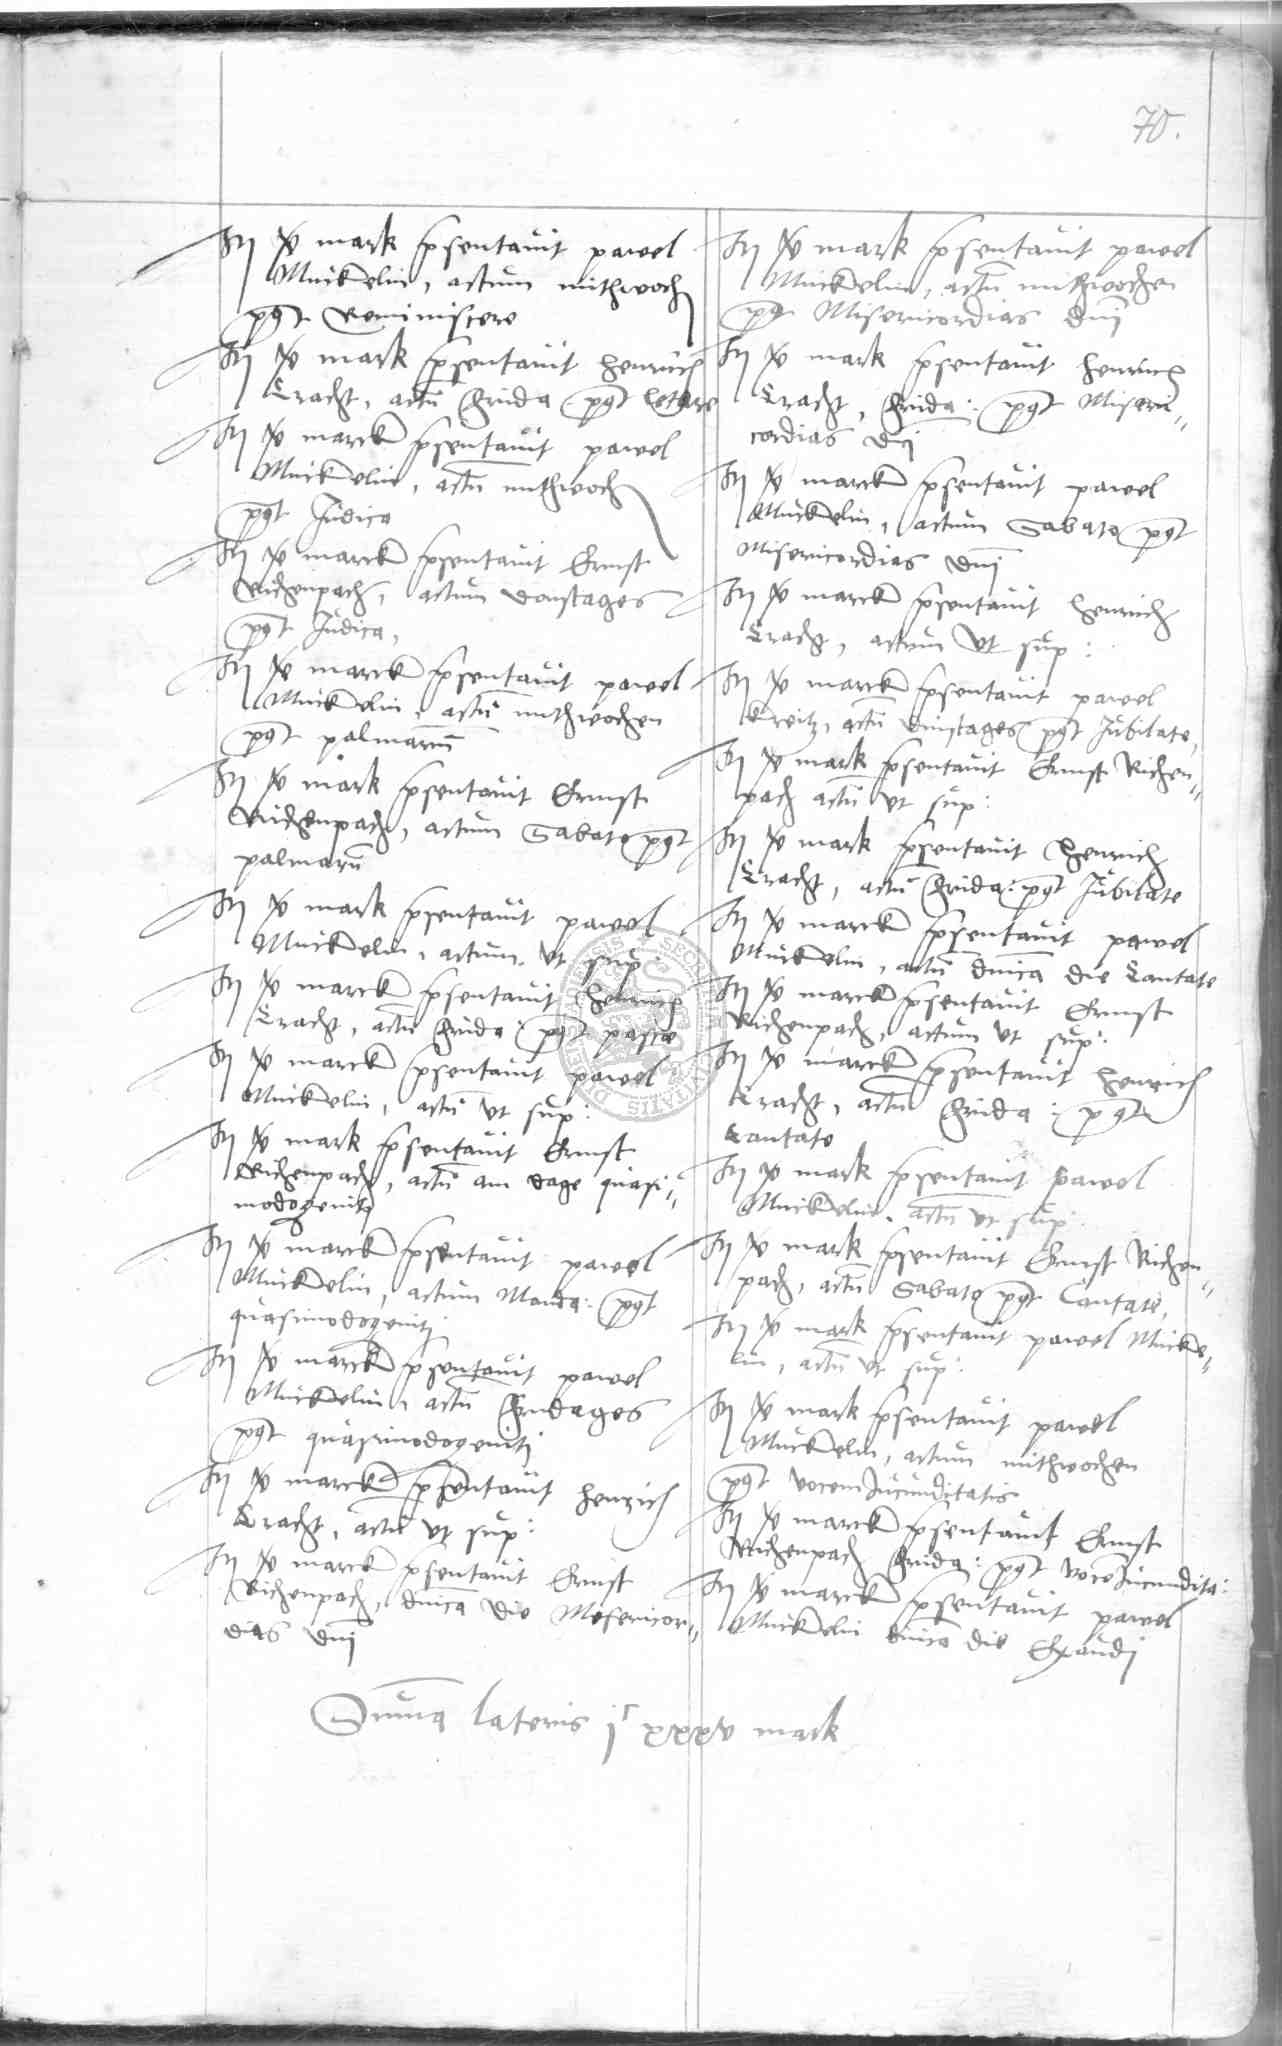 70.
Itm xv mark psentavit pawel
Muckelin, actum mithwoch
post Reminiscere
Itm xv mark psentavit henrich
Cracht, actu frida post letare
Itm xv marck psentavit pawel
Muckelin, actu mithwoch
post Judica
Itm xv marck psentavit Ernst
Richenpach, actum donstages
post Judica,
Itm xv marck psentavit pawel
Muckelin, actu mithwochen
post palmaru
Itm xv mark psentavit Ernst
Richenpach, actum Sabato post
palmaru
Itm xv mark psentavit pawel
Muckelin, actum ut sup:
Itm xv marck psentavit henrich
Cracht, actu frida: post pasce
Itm xv marck psentavit pawel
Muckelin, actu ut sup:
Itm xv mark psentavit Ernst
Richenpach, actu am dage quasi„
modogeniti
Itm xv marck psentavit pawel
Muckelin, actum Manda: post
quasimodogeniti
Itm xv marck psentavit pawel
Muckelin, actu fridages
post quasimodogeniti
Itm xv marck psentavit henrich
Cracht, actu ut sup:
Itm xv marck psentavit Ernst
Richenpach, dnica die Misericor„
dias dni
Itm xv mark psentavit pawel
Muckelin, actu mithwochen
post Misericordias dni
Itm xv mark psentavit henrich
Cracht, frida: post Miseri„
cordias dni
Itm xv marck psentavit pawel
Muckelin, actum Sabato post
Misericordias dni
Itm xv marck psentavit henrich
Cracht, actum ut sup:
Itm xv marck psentavit pawel
Kreitz, actu dinstages post Jubilate,
Itm xv mark psentavit Ernst Richen„
pach actu ut sup:
Itm xv mark psentavit henrich
Cracht, actu frida: post Jubilate
Itm xv marck psentavit pawel
Muckelin, actu dnica die Cantate
Itm xv marck psentavit Ernst
Richenpach, actum ut sup:
Itm xv marck psentavit henrich
Cracht, actu frida: post
Cantate
Itm xv mark psentavit pawel
Muckelin, actu ut sup:
Itm xv mark psentavit Ernst Richen„
pach, actu Sabato post Cantate,
Itm xv mark psentavit pawel Mucke„
lin, actu ut sup:
Itm xv mark psentavit pawel
Muckelin, actum mithwochen
post vocem Jucunditatis
Itm xv marck psentavit Ernst
Richenpach frida: post voce Jucundita:
Itm xv marck psentavit pawel
Muckelin dnica die Exaudi
Suma lateris jc xxxv mark